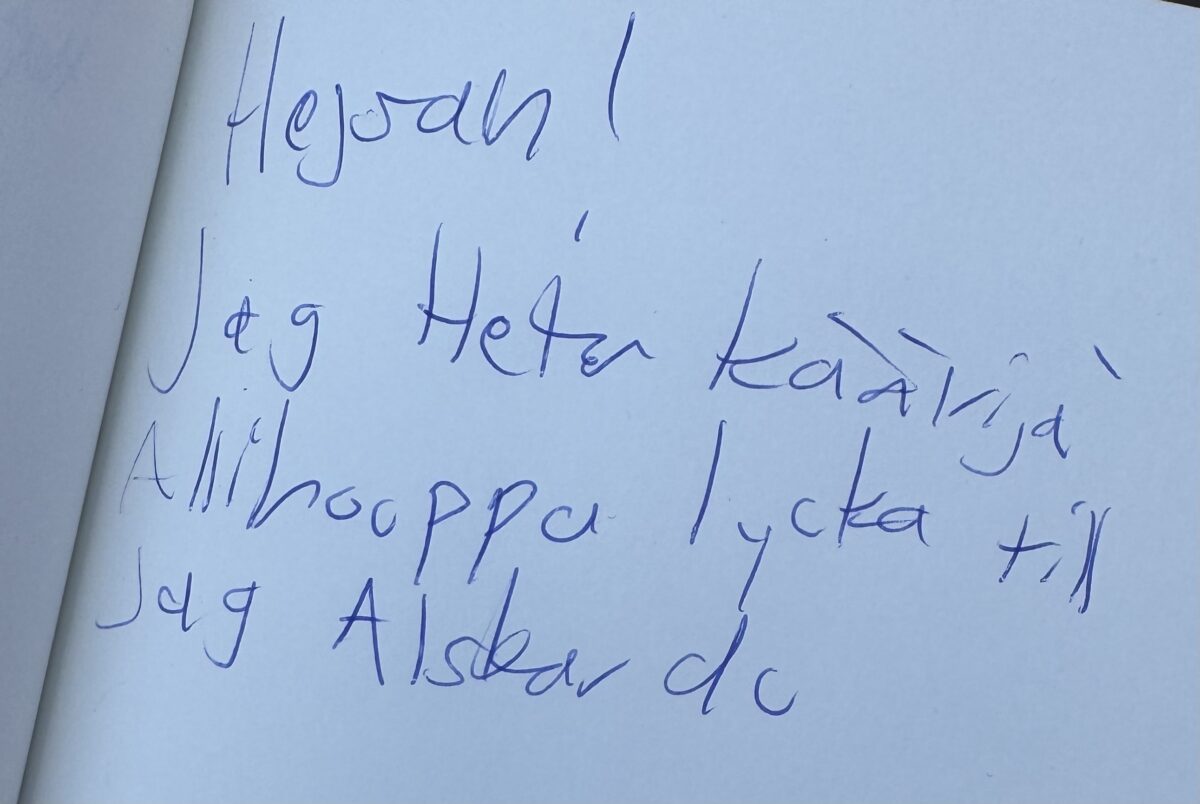 Hejsan!
Jag Hetar käärijä
Allihooppa lycka till
Jag Alskar du